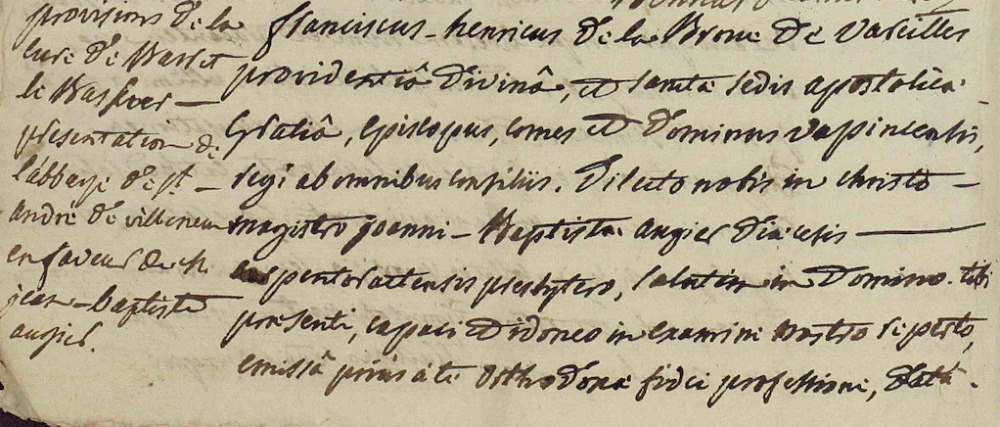 provisions de la
cure de Barret
le Bas sur —
presentation de
l'abbaye de st —
andré de villeneuve
en faveur de mr
jean-baptiste
augier.
franciscus-henricus de la Broue de Vareilles
providentiâ divinâ, et sanctæ sedis apostolicæ
gratiâ, episcopus, comes et dominus vapincensis,
regi ab omnibus consiliis. Dilecto nobis in christo —
magistro joanni-Baptistæ augier diæcesis —
carpentoractensis presbytero, salutem in Domino. tibi
præsenti, capaci et idoneo in examine nostro reperto,
emissâ prius a te orthodoxæ fidei professione, datâ